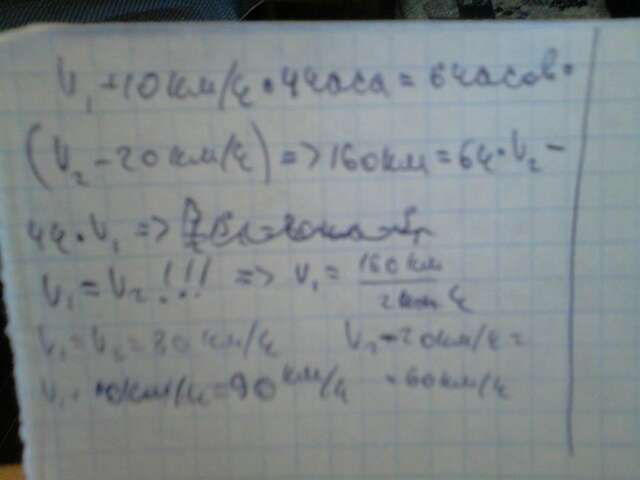 V₁+10км/ч•4часа=6часов•
(V₂-20км/ч)=>160км=6ч•V₂-
4ч•V₁=>
V₁=V₂!!!=>V₁=160км/2ч
V₁=V₂=80км/ч V₂-20км/ч=
V₁+10км/ч=90км/ч =60км/ч